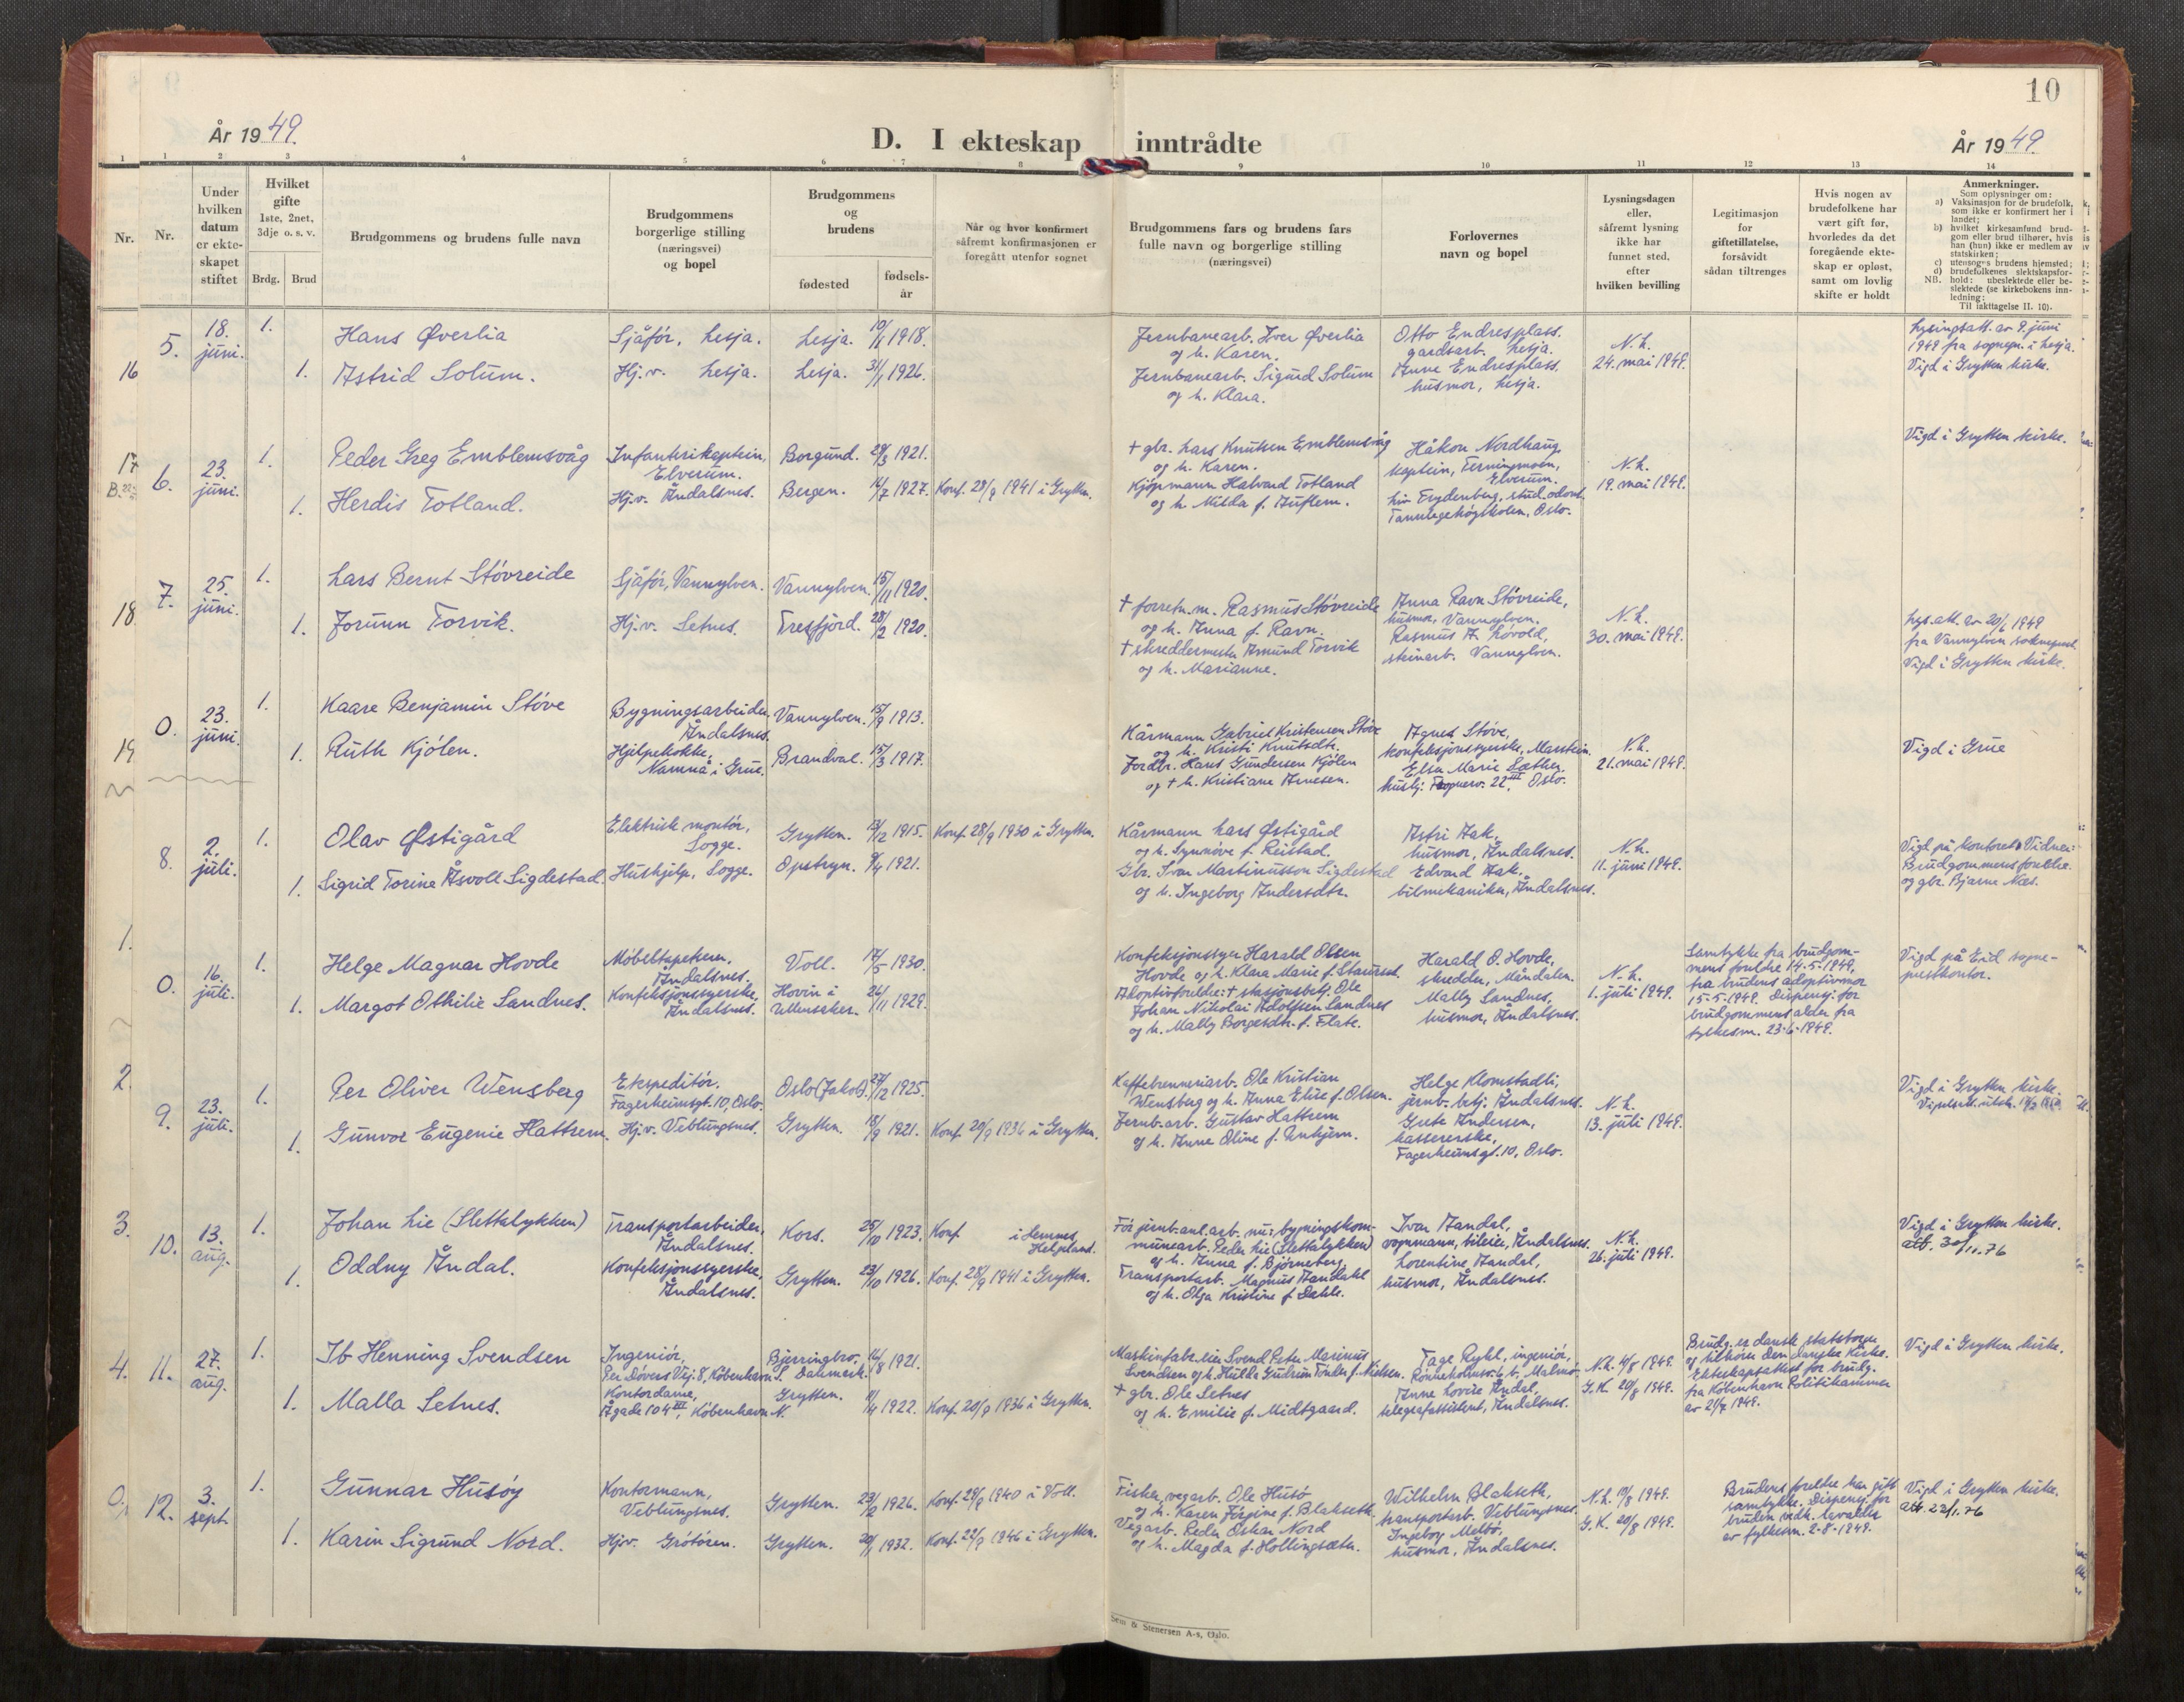 10
År 1949.
D. I ekteskap inntrådte
År 1949.
1 1 2 3 4 5 6 7 8 9 10 11 12 13 14
Nr.
Nr.
Under hvilken datum er ekteskapet stiftet
Hvilket gifte
1ste, 2net, 3dje o. s. v.
Brdg. Brud
Brudgommens og brudens fulle navn
Brudgommens borgerlige stilling (næringsvei) og bopel
Brudgommens og brudens
fødested
fødsels-år
Når og hvor konfirmert såfremt konfirmasjonen er foregått utenfor sognet
Brudgommens fars og brudens fars fulle navn og borgerlige stilling (næringsvei)
Forlovernes navn og bopel
Lysningsdagen eller, såfremt lysning ikke har funnet sted, efter hvilken bevilling
Legitimasjon for giftetillatelse, forsåvidt sådan tiltrenges
Hvis nogen av brudefolkene har vært gift før, hvorledes da det foregående ekteskap er opløst, samt om lovlig skifte er holdt
Anmerkninger.
Som oplysninger om:
a) Vaksinasjon for de brudefolk, som ikke er konfirmert her i landet;
b) hvilket kirkesamfund brudgom eller brud tilhører, hvis han (hun) ikke er medlem av statskirken;
c) utensogns brudens hjemsted;
d) brudefolkenes slektskapsforhold: ubeslektede eller beslektede (se kirkebokens innledning;
NB.
Til iakttagelse II. 10).
16
5. 18. juni. 1. Hans Øverlia
Sjåfør, Lesja. Lesja. 10/1 1918.
Jernbanearb. Iver Øverlia
og h. Karen.
Otto Endresplass.
gardsarb. Lesja.
N.k.
24. mai 1949.
Lysingsatt. av 9. juni
1949 fra sognepr. i Lesja.
Vigd i Grytten kirke.
1. Astrid Solum.
Hj.v. Lesja. Lesja. 31/1 1926.
Jernbanearb. Sigurd Solum
og h. Klara.
Anne Endresplass.
husmor, Lesja.
17
6. 23. juni. 1. Peder Greg Emblemsvåg
Infanterikaptein,
Elverum.
Borgund. 29/3 1921.
† gbr. Lars Knutsen Emblemsvåg
og h. Karen.
Håkon Nordhaug
kaptein, Terningmoen,
Elverum.
N.k.
19. mai 1949.
Vigd i Grytten kirke.
1. Herdis Totland.
Hj.v. Åndalsnes. Bergen. 16/7 1927. Konf. 28/9 1941 i Grytten.
Kjøpmann Halvard Totland
og h. Milda f. Auflem.
Liv Frydenberg, stud. odont.
Tannlegehøgskolen, Oslo.
18
7. 25. juni. 1. Lars Bernt Støvreide
Sjåfør, Vannylven. Vannylven. 15/11 1920.
† forretn.m. Rasmus Støvreide
og h. Anna f. Ravn.
Anna Ravn Støvreide,
husmor, Vannylven.
N.k.
30. mai 1949.
Lys.att. av 20/6 1949
fra Vannylven sokneprest.
Vigd i Grytten kirke.
1. Jorunn Torvik.
Hj.v. Setnes. Tresfjord. 28/2 1920.
† skreddermester Amund Torvik
og h. Marianne.
Rasmus A. Løvold,
steinarb. Vannylven.
19
0. 23. juni. 1. Kaare Benjamin Støve
Bygningsarbeider,
Åndalsnes.
Vannylven. 15/9 1913.
Kårmann Gabriel Kristensen Støve
og h. Kristi Knutsdtr.
Agnes Støve,
konfeksjonssyerske, Marstein.
N.k.
21. mai 1949.
Vigd i Grue
1. Ruth Kjølen.
Hjelpekokke,
Namnå i Grue.
Brandval. 15/3 1917.
Jordbr. Hans Gundersen Kjølen
og † h. Kristiane Arnesen.
Elsa Marie Sæther,
husbj. Fognerv. 22 III, Oslo.
8. 2. juli. 1. Olav Østigård
Elektrisk montør,
Sogge.
Grytten. 13/12 1915. Konf. 28/9 1930 i Grytten.
Kårmann Lars Østigård
og h. Synnøve f. Reistad.
Astri Aak,
husmor, Åndalsnes.
N.k.
11. juni 1949.
Vigd på kontoret. Vidner:
Brudgommens foreldre
og gbr. Bjarne Næs.
1. Sigrid Torine Åsvoll Sigdestad.
Hushjelp, Sogge. Opstryn. 9/4 1921.
Gbr. Ivar Martinusson Sigdestad
og h. Ingeborg Andersdtr.
Edvard Aak,
bilmekaniker, Åndalsnes.
1.
0. 16. juli. 1. Helge Magnar Hovde
Møbeltapetserer,
Åndalsnes.
Voll. 17/5 1930.
Konfeksjonssyer Harald Olsen
Hovde og h. Klara Marie f. Staurset.
Harald O. Hovde,
skredder, Måndalen.
N.k.
1. juli 1949.
Samtykke fra brudgommens
foreldre 14-5-1949,
fra brudens adoptivmor
15-5-1949. Dispens. for
brudgommens alder fra
fylkesm. 23-6-1949.
Vigd på Eid sogneprestkontor.
1. Margot Othilie Sandnes.
Konfeksjonssyerske,
Åndalsnes.
Hovin i
Ullensaker. 26/11 1929.
Adoptivforeldre: † stasjonsbetj. Ole
Johan Nikolai Adolfsen Sandnes
og h. Mally Borgesdtr. f. Flate.
Mally Sandnes,
husmor, Åndalsnes.
2.
9. 23. juli. 1. Per Oliver Wensberg
Ekspeditør.
Fagerheimsgt. 10, Oslo.
Oslo (Jakob). 27/12 1925.
Kaffebrenneriarb. Ole Kristian
Wensberg og h. Anna Elise f. Olsen.
Helge Klomstadli,
jernb. betj. Åndalsnes.
N.k.
13. juli 1949.
Vigd i Grytten kirke.
1. Gunvor Eugenie Hattrem.
Hj.v. Veblungsnes. Grytten. 18/9 1921. Konf. 20/9 1936 i Grytten.
Jernb.arb. Gustav Hattrem
og h. Anne Oline f. Unhjem.
Grete Andersen,
kassererske,
Fagerheimsgt. 10, Oslo.
3.
10. 13. aug. 1. Johan Lie (Slettalykken)
Transportarbeider,
Åndalsnes.
Kors. 25/10 1923. Konf i Lemnes,
Helgeland.
Før jernb.anl.arb. nu: bygningskommunearb.
Peder Lie (Slettalykken)
og h. Anna f. Bjørneberg.
Ivar Aandal,
vognmann, bileier, Åndalsnes.
N.k.
26. juli 1949.
Vigd i Grytten kirke.
att. 30/11.76
1. Oddny Åndal.
Konfeksjonssyerske,
Åndalsnes.
Grytten. 23/10 1926. Konf. 28/9 1941 i Grytten.
Transportarb. Magnus Aandahl
og h. Olga Kristine f. Dahle.
Lorentine Aandal,
husmor, Åndalsnes.
4.
11. 27. aug. 1. Ib Henning Svendsen
Ingeniør,
Per Døvers Vej. 8, København S.
Bjerringbro,
Danmark. 16/8 1921.
Maskinfabr.eier Svend Peter Marinus
Svendsen og h. Hulda Gudrun Tonder f. Nielsen.
Tage Ryhl, ingeniør,
Rönneholmsv. 6 b, Malmö.
N.k. 4/8 1949.
G.K. 20/8 1949.
Brudg. er dansk statsborger
og tilhører den danske kirke.
Ekteskapsattest for brudg.
fra København Politikammer
av 21/7 1949.
Vigd i Grytten kirke.
1. Malla Setnes.
Kontordame,
Ågade 104 III, København N.
Grytten. 11/4 1922. Konf. 20/9 1936 i Grytten.
† gbr. Ole Setnes
og h. Emilie f. Midtgaard.
Anne Lovise Åndal,
telegrafassistent, Åndalsnes.
0.
12. 3. sept. 1. Gunnar Husøy
Kontormann,
Veblungsnes.
Grytten. 23/2 1926. Konf. 29/9 1940 i Voll.
Fisker, vegarb. Ole Husø
og h. Karen Jørgine f. Blakseth.
Wilhelm Blakseth,
transportarb. Veblungsnes.
N.k. 19/8 1949.
G.K. 20/8 1949.
Brudens foreldre har gitt
samtykke. Dispens. for
bruden vedk. lavalder
av fylkesm. 2-8-1949.
Vigd i Grytten kirke.
att. 22/1.76
1. Karin Sigrund Nord.
Hjv. Grötören. Grytten. 20/1 1932. Konf. 22/9 1946 i Grytten.
Vegarb. Peder Oskar Nord
og h. Magda f. Hollingsæter.
Ingeborg Melbö,
husmor, Åndalsnes.
Sem & Stenersen A-s, Oslo.